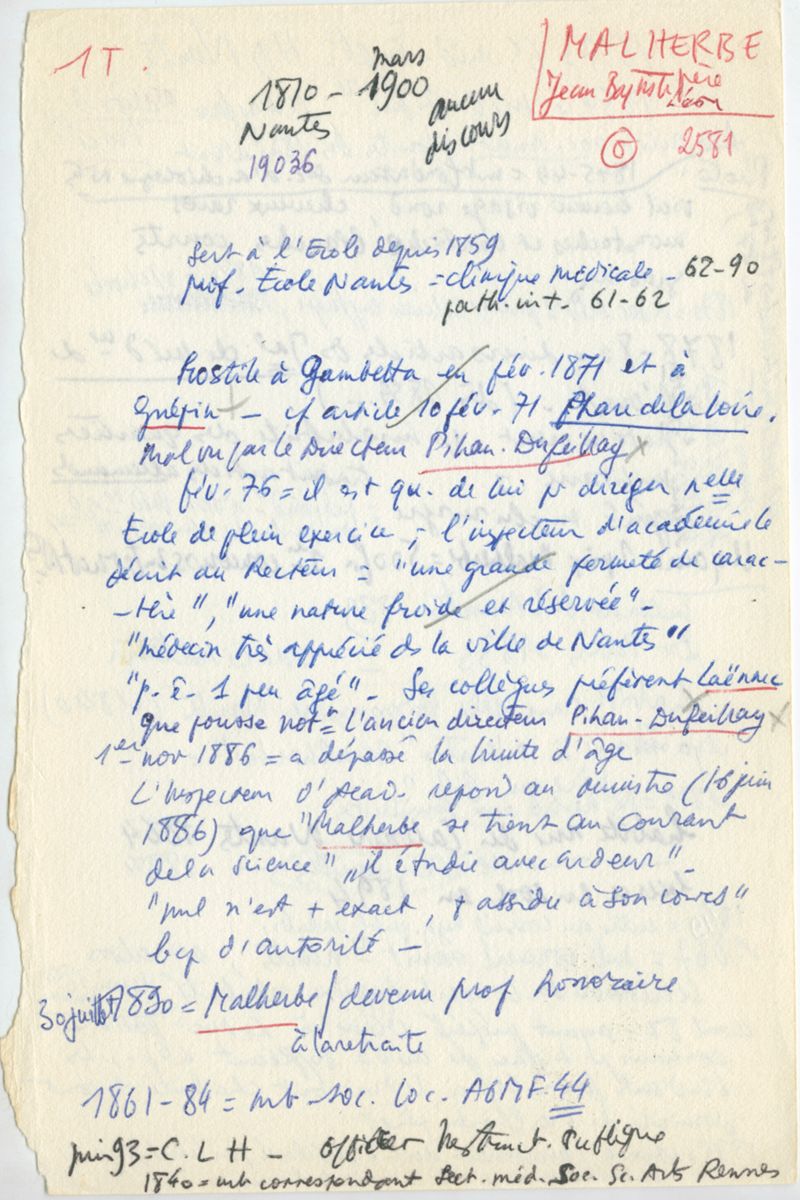 1T.
MALHERBE
Jean Baptiste père
Léon
2581
1810 - mars 1900
Nantes
aucun discours
19036
Sert à l'Ecole depuis 1859
prof. Ecole Nantes = clinique médicale - 62-90
path. int. 61-62
Hostile à Gambetta en fév. 1871 et à
Guépin - cf article 10 fév. 71 Phare de la Loire.
Mal vu par le Directeur Pihan-Dufeilhay
fév. 76 = il est qu. de lui pr diriger nelle
Ecole de plein exercice ; l'inspecteur d'académie le
décrit au Recteur = "une grande fermeté de carac-
-tère", "une nature froide et réservée" -
"médecin très apprécié ds la ville de Nantes"
"p. ê. 1 peu âgé" - Ses collègues préfèrent Laënnec
que pousse nott l'ancien directeur Pihan-Dufeilhay
1er nov 1886 = a dépassé la limite d'âge
L'Inspecteur d'Acad. répond au ministre (16 juin
1886) que "Malherbe se tient au courant
de la science" "il étudie avec ardeur" -
"nul n'est + exact, + assidu à son cours"
bcp d'autorité -
30 juillet 1890 = Malherbe / devenu prof honoraire
à la retraite
1861-84 = mb soc. loc. AGMF 44
juin 93 = C. L H - officier Instruct. Publique
1840 = mb correspondant Sect. méd. Soc. Sc. Arts Rennes